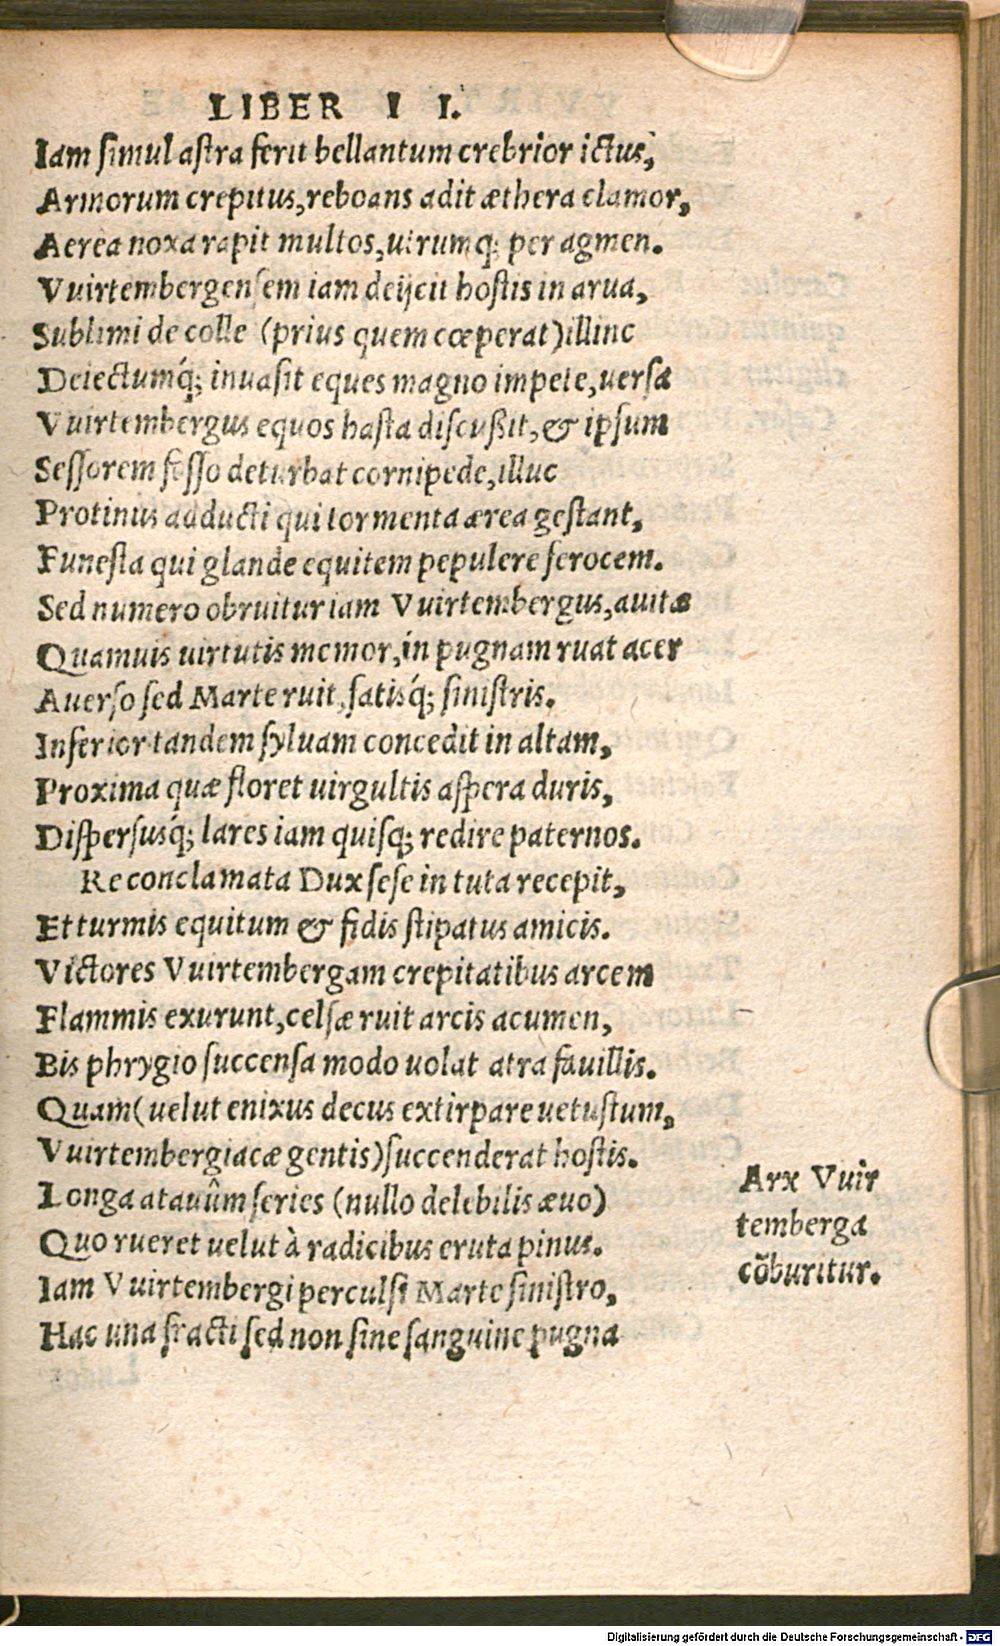 LIBER II.
Iam simul astra ferit bellantum crebrior ictus,
Armorum crepitus, reboans adit æthera clamor,
Aerea noxa rapit multos, utrumq; per agmen.
Vuirtembergensem iam deijcit hostis in arua,
Sublimi de colle (prius quem cœperat) illinc
Deiectumq́; inuasit eques magno impete, uersæ
Vuirtembergus equos hasta discußit, & ipsum
Sessorem fosso deturbat cornipede, illuc
Protinus adducti qui tormenta ærea gestant,
Funesta qui glande equitem pepulere ferocem.
Sed numero obruitur iam Vuirtembergus, auitæ
Quamuis uirtutis memor, in pugnam ruat acer
Auerso sed Marte ruit, fatisq́; sinistris.
Inferior tandem syluam concedit in altam,
Proxima quæ floret uirgultis aspera duris,
Dispersusq́; lares iam quisq; redire paternos.
Re conclamata Dux sese in tuta recepit,
Et turmis equitum & fidis stipatus amicis.
Victores Vuirtembergam crepitatibus arcem
Flammis exurunt, celsæ ruit arcis acumen,
Bis phrygio succensa modo uolat atra fauillis.
Quam (uelut enixus decus extirpare uetustum,
Vuirtembergiacæ gentis) succenderat hostis.
Longa atauûm series (nullo delebilis æuo)
Quo rueret uelut à radicibus eruta pinus.
Iam Vuirtembergi perculsi Marte sinistro,
Hac una fracti sed non sine sanguine pugna
Arx Vuir
temberga
cõburitur.
Digitalisierung gefördert durch die Deutsche Forschungsgemeinschaft - DFG